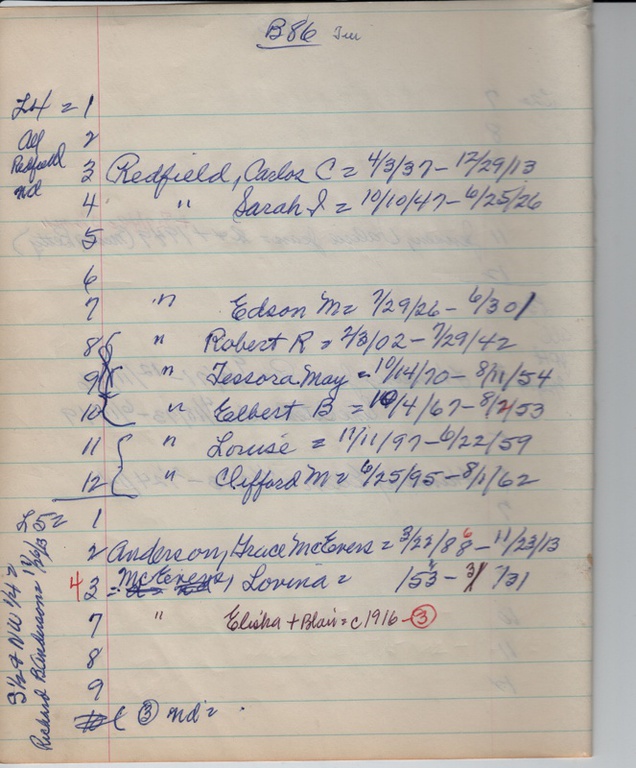 B86
L4 = 1
All 2
Redfield 3 Redfield, Carlos C = 4/3/37 - 12/29/13
nd 4 " Sarah I = 10/10/47 - 6/25/26
5
6
7 " Edson M = 7/29/26 - 6/30/
8 " Robert R = 2/3/02 - 7/29/42
9 " Tessora May = 10/14/70 - 8/11/54
10 " Elbert B = 10/4/67 - 8/2/53
11 " Louise = 11/11/97 - 6/22/59
12 " Clifford M = 6/25/95 - 8/1/62
L5 = 1
2 Anderson, Grace McEvers = 3/22/88 6 - 11/23/13
4 3 = McEvers, Lovina = /53 - 3/ /31
7 " Elisha + Blair = c1916 - 3
8
9
3 nd = .
S 1/2 + NW 1/4 =
Richard B Anderson =